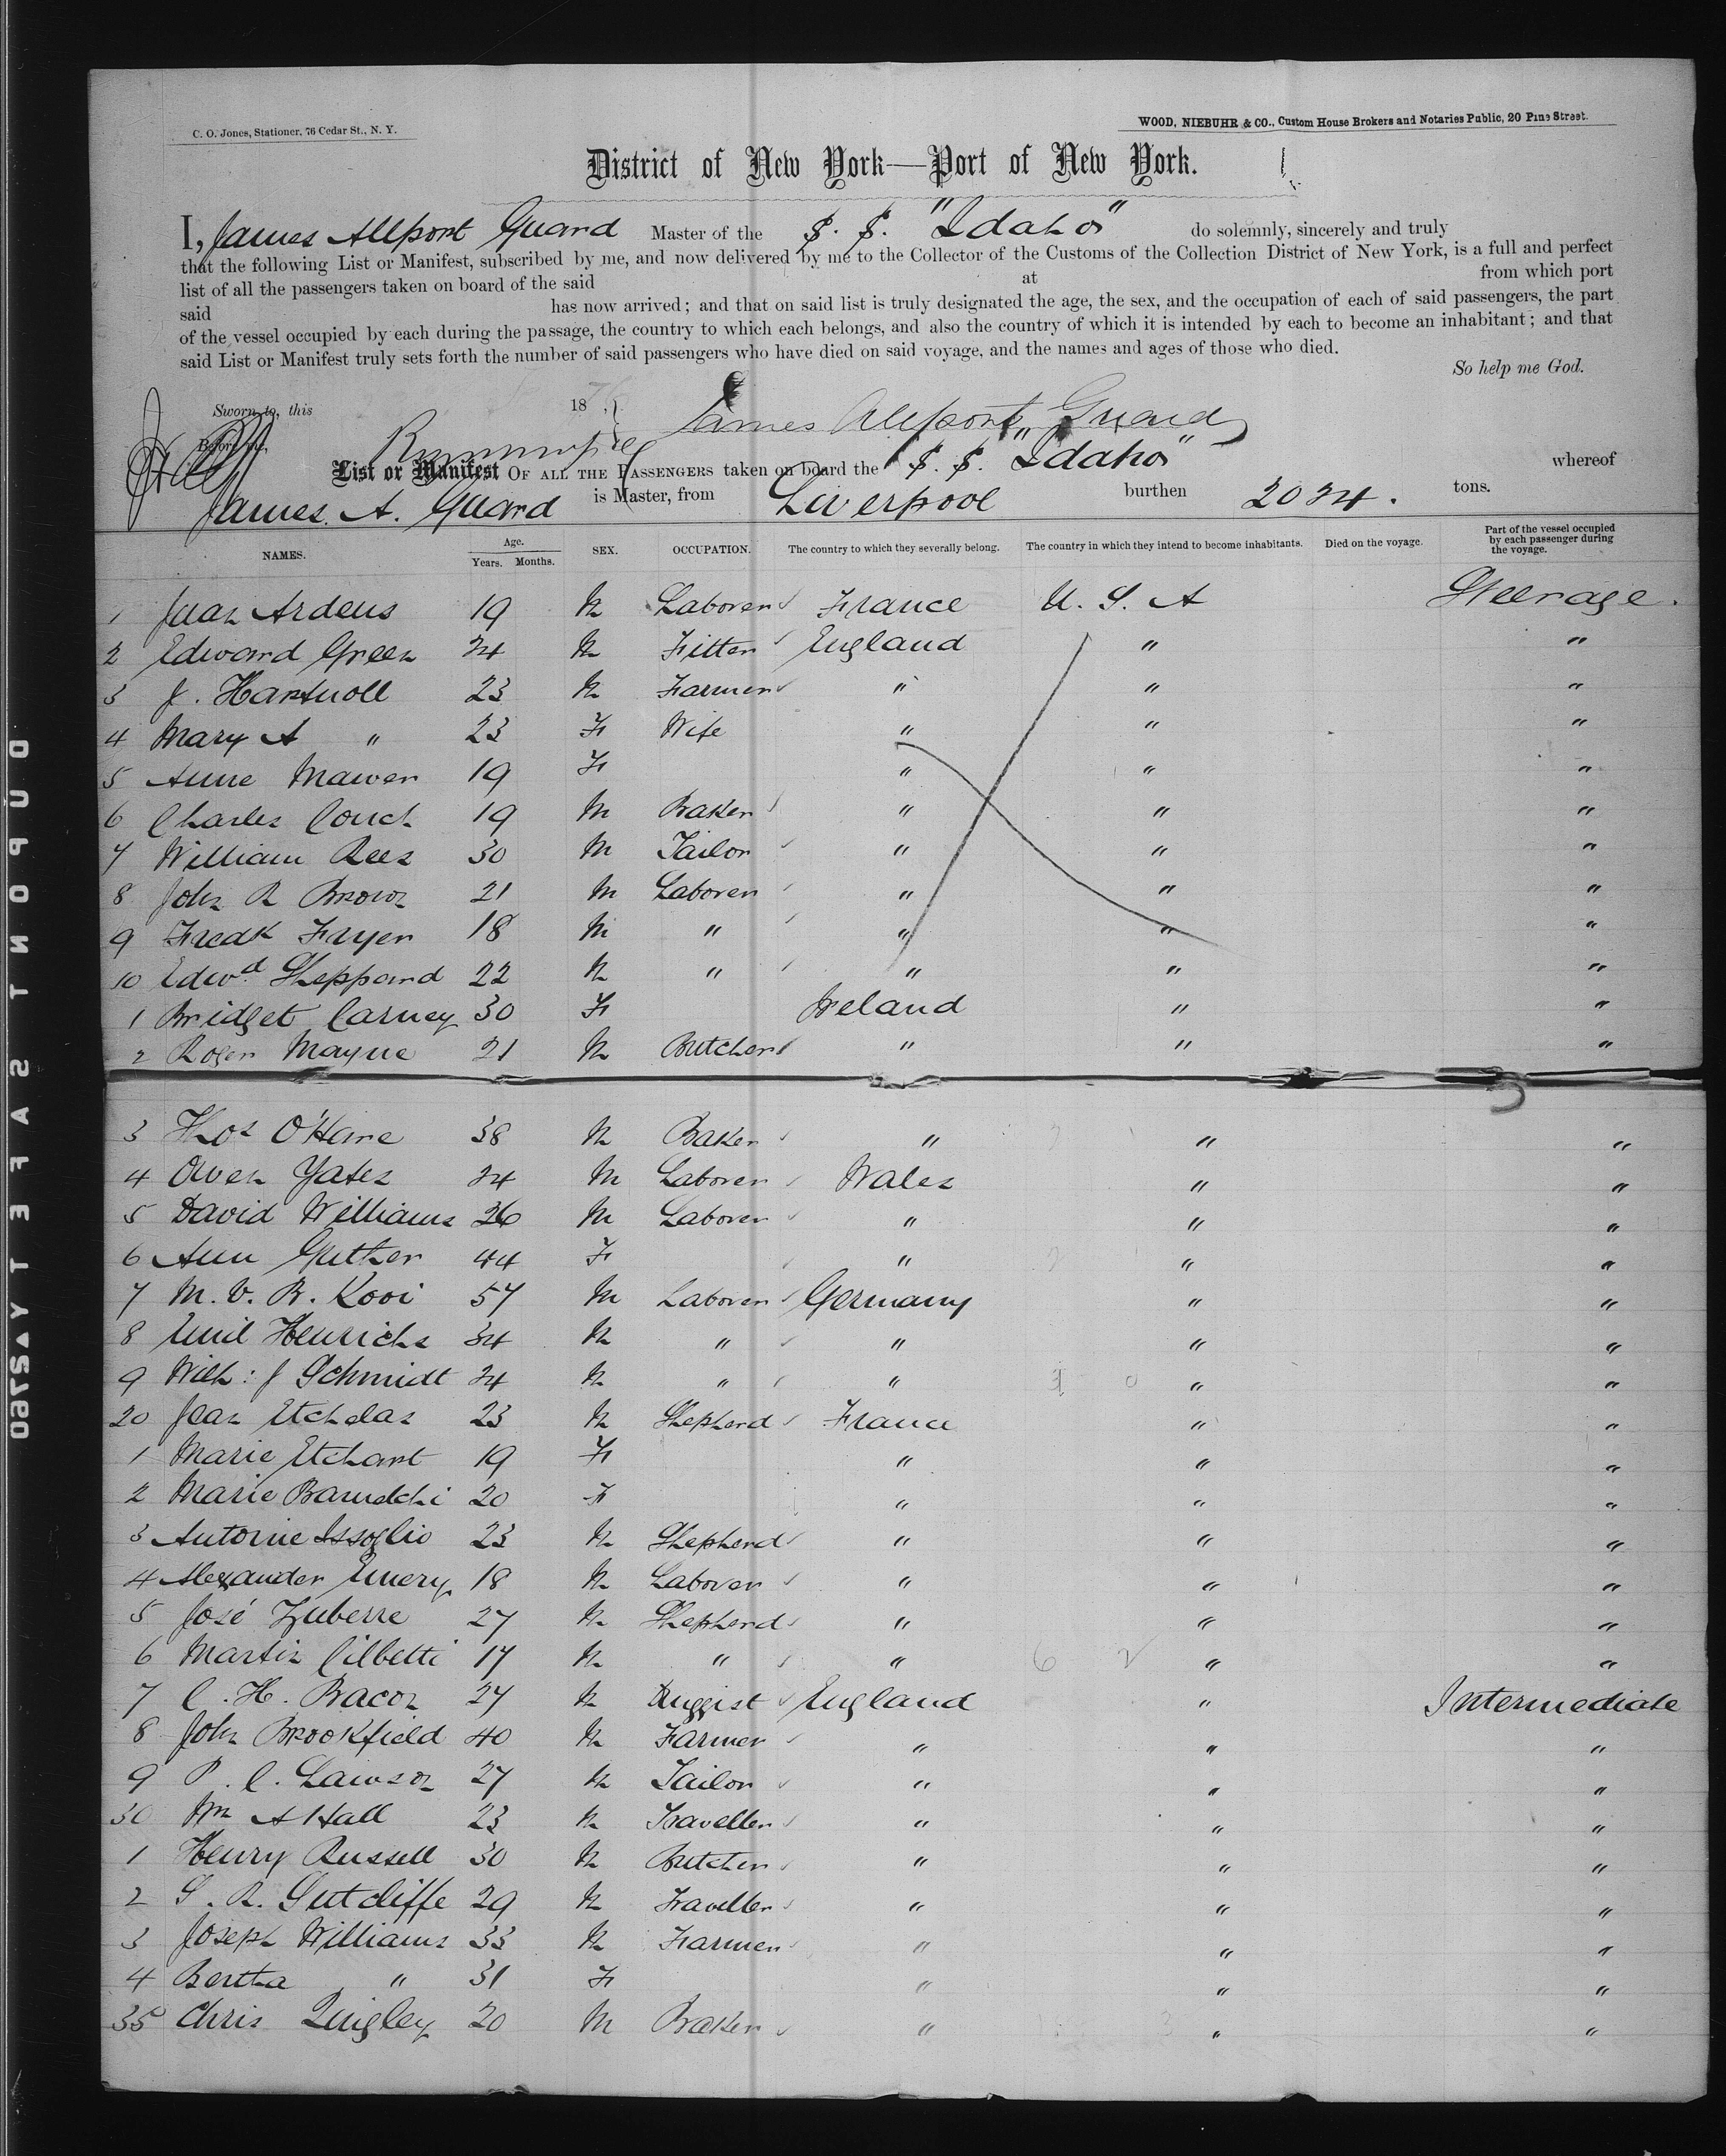 C. O. Jones, Stationer, 76 Cedar St., N. Y.
WOOD, NIEBUHR & CO., Custom House Brokers and Notaries Public, 20 Pine Street.
District of New York—Port of New York.
I, James Allport Guard Master of the S. S. "Idaho" do solemnly, sincerely and truly
that the following List or Manifest, subscribed by me, and now delivered by me to the Collector of the Customs of the Collection District of New York, is a full and perfect
list of all the passengers taken on board of the said at from which port
said has now arrived; and that on said list is truly designated the age, the sex, and the occupation of each of said passengers, the part
of the vessel occupied by each during the passage, the country to which each belongs, and also the country of which it is intended by each to become an inhabitant; and that
said List or Manifest truly sets forth the number of said passengers who have died on said voyage, and the names and ages of those who died.
So help me God.
Sworn to, this 18
James Allport Guard
Before me,
List or Manifest OF ALL THE PASSENGERS taken on board the S. S. "Idaho" whereof
James A. Guard is Master, from Liverpool burthen 2034. tons.
NAMES. Age. Years. Months. SEX. OCCUPATION. The country to which they severally belong. The country in which they intend to become inhabitants. Died on the voyage. Part of the vessel occupied by each passenger during the voyage.
1 Juan Ardeus 19 M Laborer France U. S. A Steerage.
2 Edward Green 24 M Fitter England " "
3 J. Hartnoll 23 M Farmer " " "
4 Mary A " 23 F Wife " " "
5 Anne Mawer 19 F " " "
6 Charles Couch 19 M Baker " " "
7 William Rees 30 M Tailor " " "
8 John R Brown 21 M Laborer " " "
9 Fredk Fryer 18 M " " " "
10 Edwd Sheppard 22 M " " " "
1 Bridget Carney 30 F Ireland " "
2 Roger Mayne 21 M Butcher " " "
3 Thos O'Hare 38 M Baker " " "
4 Owen Yates 24 M Laborer Wales " "
5 David Williams 26 M Laborer " " "
6 Ann Guther 44 F " " "
7 M. V. R. Kooi 57 M Laborer Germany " "
8 Emil Henrichs 34 M " " " "
9 Wilh: J Schmidt 24 M " " " "
20 Jean Etchelas 23 M Shepherd France " "
1 Marie Etchart 19 F " " "
2 Marie 20 F " " "
3 Antoine Issoglio 23 M Shepherd " " "
4 Alexander Emery 18 M Laborer " " "
5 José Zuberre 27 M Shepherd " " "
6 Martin Cilbetti 17 M " " " "
7 C. H. Bacon 27 M Druggist England " Intermediate
8 John Brookfield 40 M Farmer " " "
9 P. C. Lawson 27 M Tailor " " "
30 Wm A Hall 23 M Traveller " " "
1 Henry Russell 30 M Butcher " " "
2 S. R. Sutcliffe 29 M Traveller " " "
3 Joseph Williams 33 M Farmer " " "
4 Bertha " 31 F " " "
35 Chris Quigley 20 M Baker " " "
DUPONT SAFETY